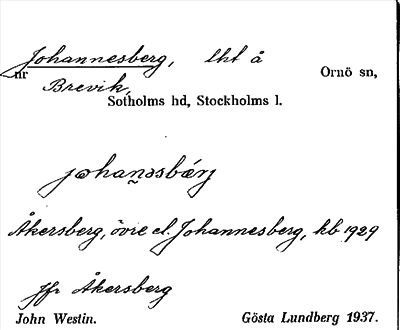 Johannesberg, lht å
nr Ornö sn,
Brevik,
Sotholms hd, Stockholms l.
johan̰əsbærj
Åkersberg, övre el. Johannesberg, kb 1929
Jfr Åkersberg
John Westin. Gösta Lundberg 1937.